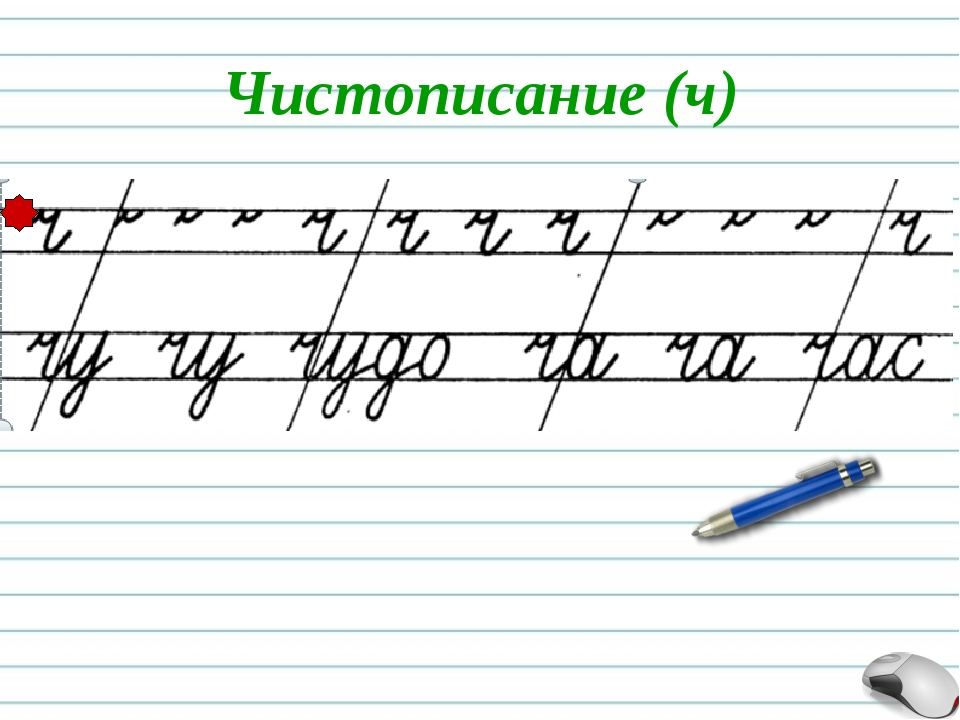 Чистописание (ч)
ч ч ч ч ч ч
чу чу чудо ча ча час